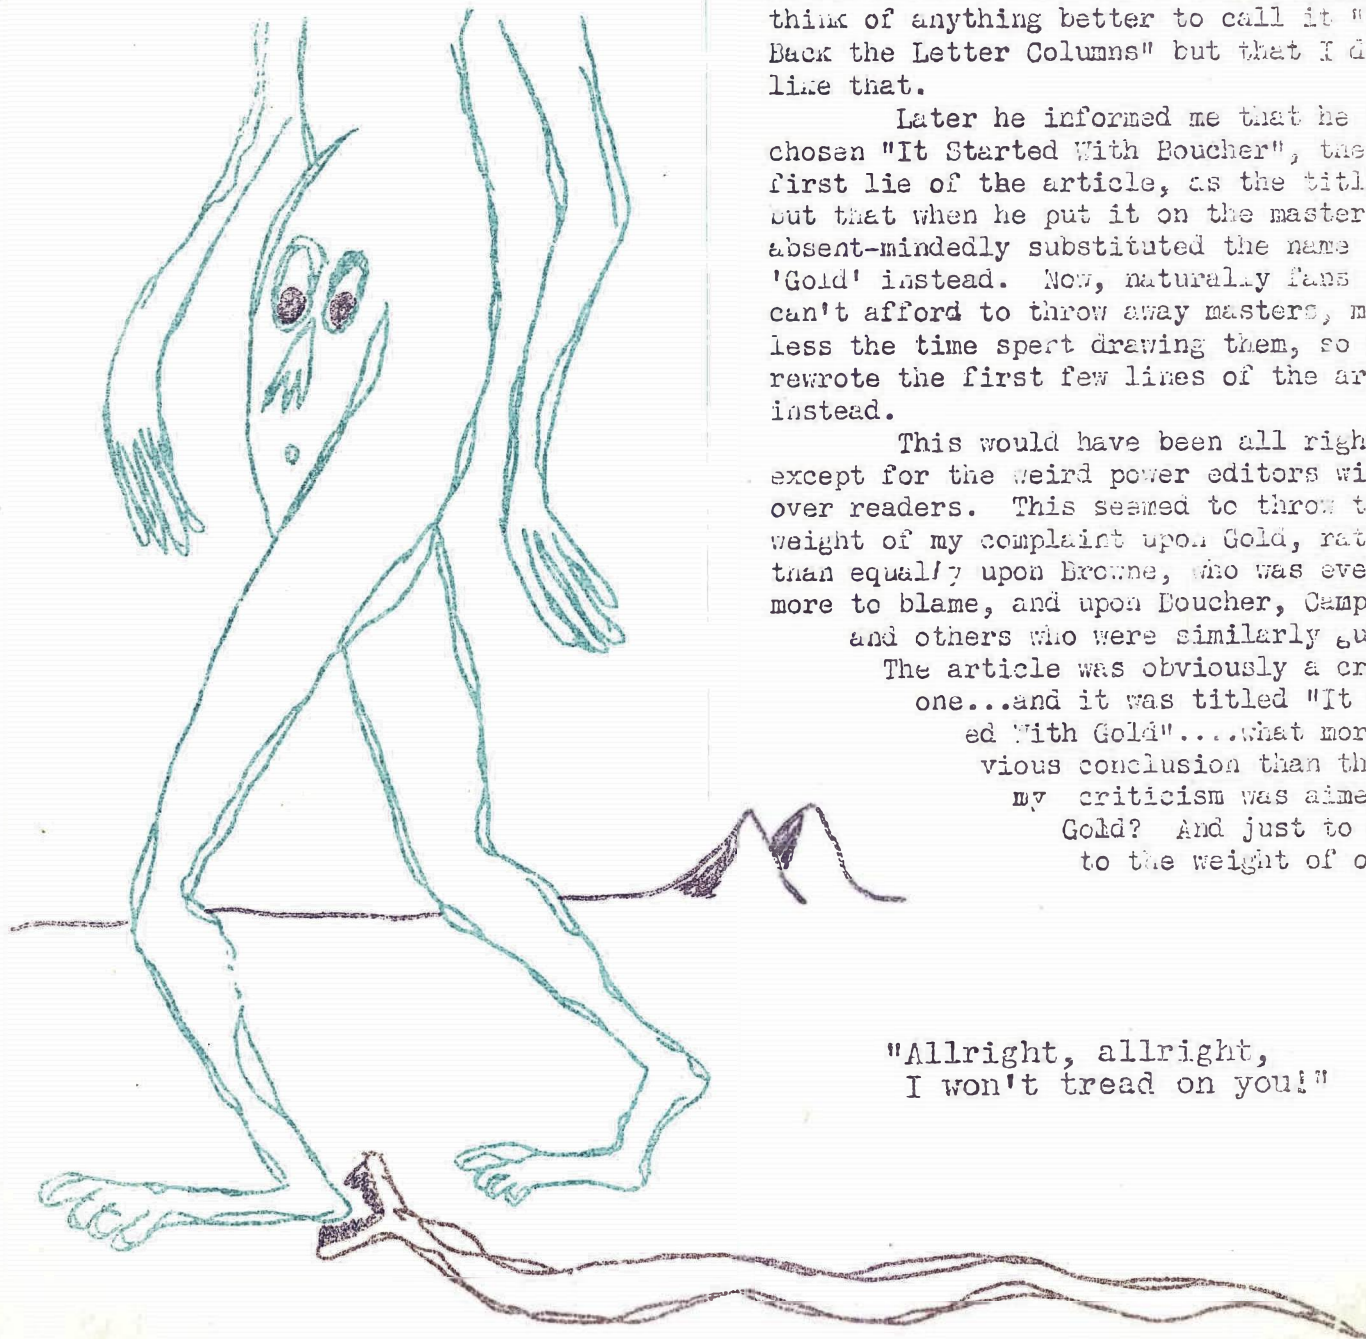 think of anything better to call it "
Back the Letter Columns" but that I d
like that.
Later he informed me that he
chosen "It Started With Boucher", the
first lie of the article, as the titl
but that when he put it on the master
absent-mindedly substituted the name
'Gold' instead. Now, naturally fans
can't afford to throw away masters, m
less the time spent drawing them, so
rewrote the first few lines of the ar
instead.
This would have been all righ
except for the weird power editors wi
over readers. This seemed to throw t
weight of my complaint upon Gold, rat
than equally upon Browne, who was eve
more to blame, and upon Boucher, Camp
and others who were similarly gu
The article was obviously a cr
one...and it was titled "It
ed With Gold"....what mor
vious conclusion than th
my criticism was aime
Gold? And just to
to the weight of o
"Allright, allright,
I won't tread on you!"